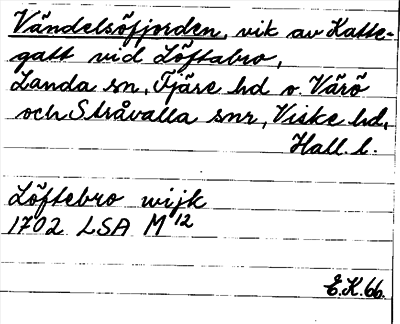 Vändelsöfjorden, vik av Katte-
gatt vid Löftabro,
Landa sn, Fjäre hd o. Värö
och Stråvalla snr, Viske hd,
Hall. l.
Löftebro wijk
1702 LSA M 12
E.K. 66.